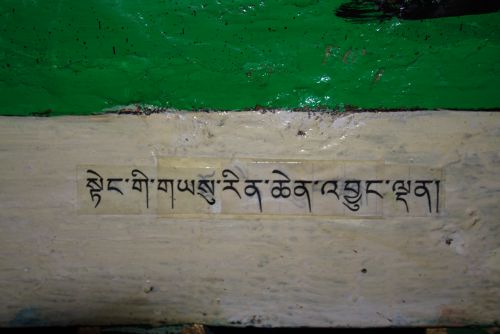 སྟེང་གི་གཡསུ་རིན་ཆེན་འབྱུང་ལྡན།